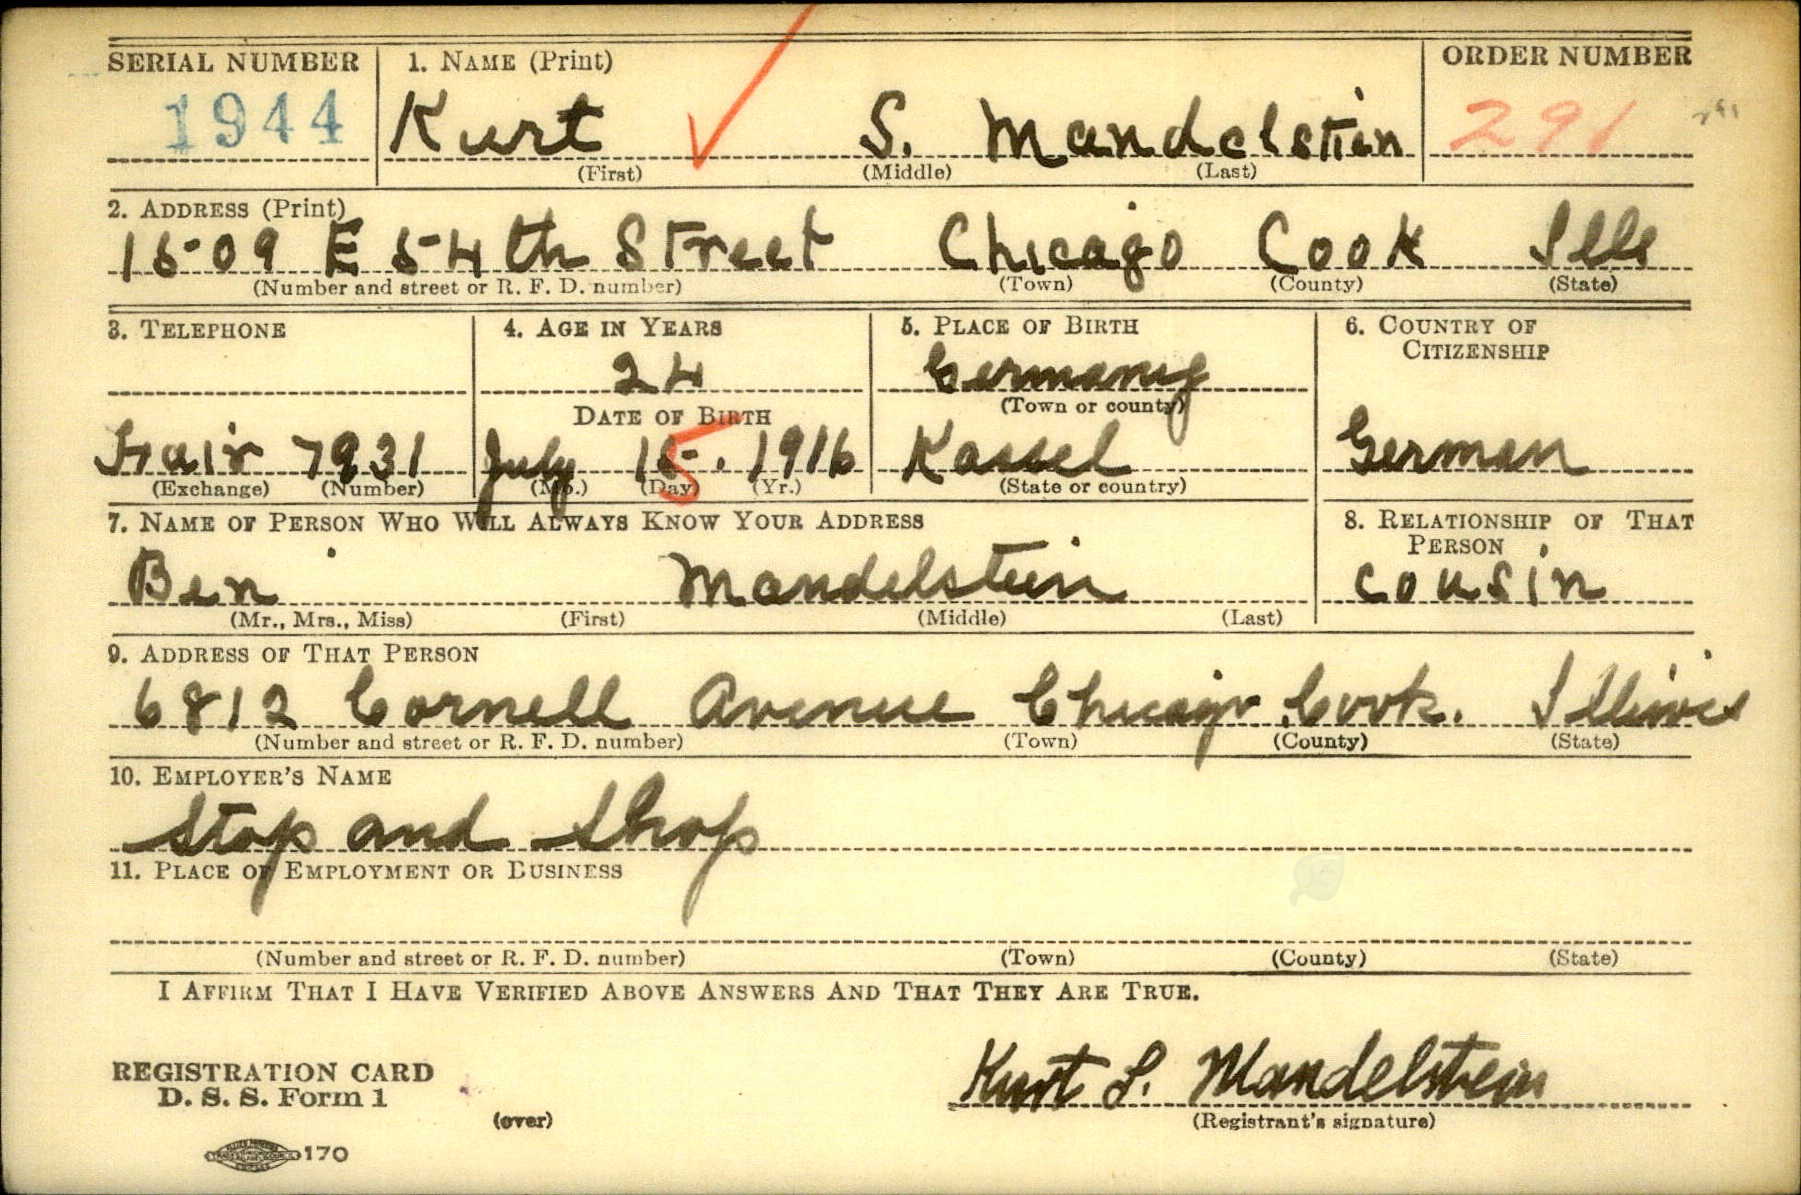 SERIAL NUMBER 1. NAME (Print) ORDER NUMBER
1944 Kurt S. Mandelstein 291
(First) (Middle) (Last)
2. ADDRESS (Print)
1509 E 54th Street Chicago Cook Ills
(Number and street or R. F. D. number) (Town) (County) (State)
3. TELEPHONE 4. AGE IN YEARS 5. PLACE OF BIRTH 6. COUNTRY OF
CITIZENSHIP
24 Germany
DATE OF BIRTH (Town or county)
Fair 7931 July 15. 1916 Kassel German
5
(Exchange) (Number) (Mo.) (Day) (Yr.) (State or country)
7. NAME OF PERSON WHO WILL ALWAYS KNOW YOUR ADDRESS 8. RELATIONSHIP OF THAT
PERSON
Ben Mandelstein cousin
(Mr., Mrs., Miss) (First) (Middle) (Last)
9. ADDRESS OF THAT PERSON
6812 Cornell Avenue Chicago Cook. Illinois
(Number and street or R. F. D. number) (Town) (County) (State)
10. EMPLOYER'S NAME
Stop and Shop
11. PLACE OF EMPLOYMENT OR BUSINESS
(Number and street or R. F. D. number) (Town) (County) (State)
I AFFIRM THAT I HAVE VERIFIED ABOVE ANSWERS AND THAT THEY ARE TRUE.
REGISTRATION CARD
D. S. S. Form 1
Kurt S. Mandelstein
(over) (Registrant's signature)
170